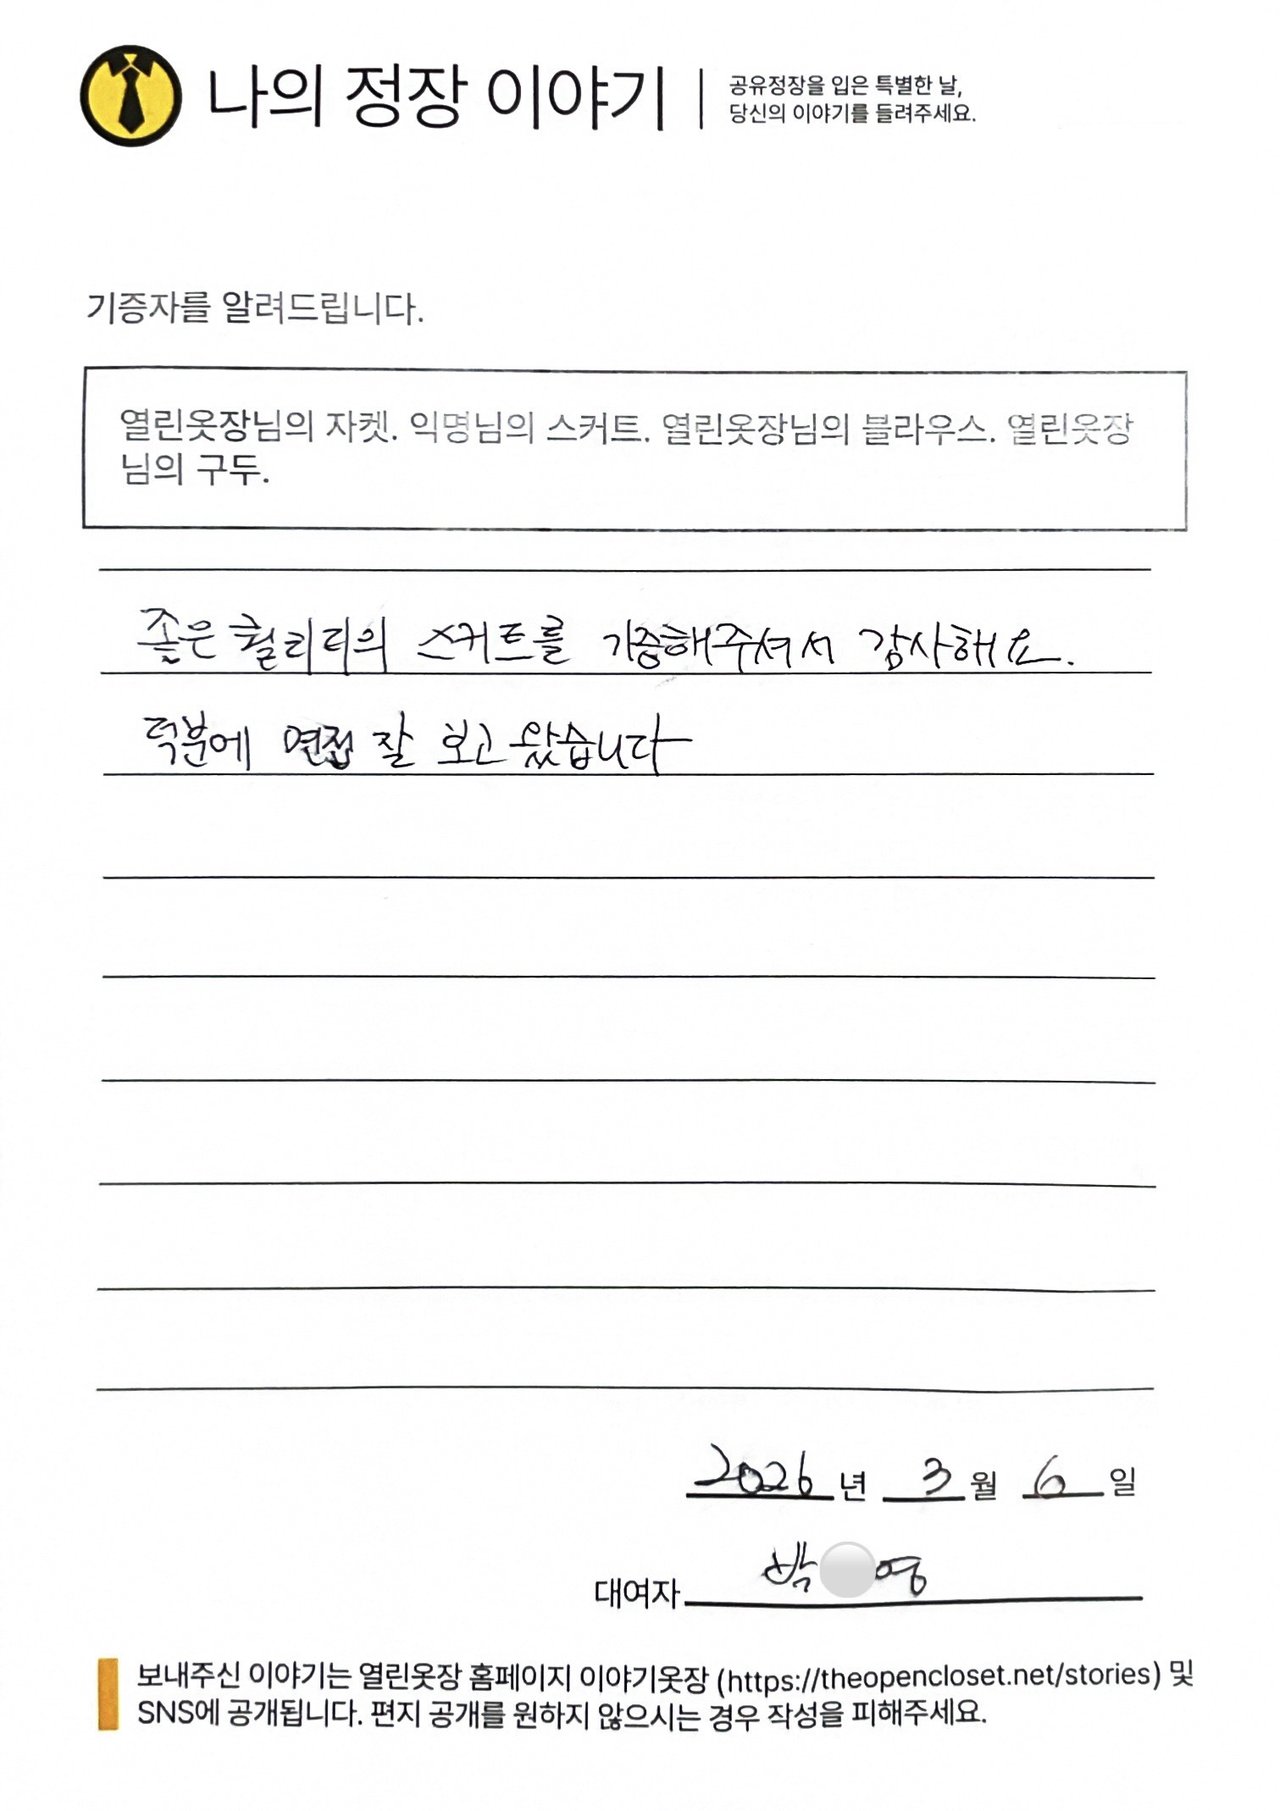 나의 정장 이야기
공유정장을 입은 특별한 날,
당신의 이야기를 들려주세요.
기증자를 알려드립니다.
열린옷장님의 자켓. 익명님의 스커트. 열린옷장님의 블라우스. 열린옷장
님의 구두.
좋은 퀄리티의 스커트를 기증해주셔서 감사해요.
덕분에 면접 잘 보고 왔습니다
2026 년 3 월 6 일
대여자 박 영
보내주신 이야기는 열린옷장 홈페이지 이야기옷장 (https://theopencloset.net/stories) 및
SNS에 공개됩니다. 편지 공개를 원하지 않으시는 경우 작성을 피해주세요.